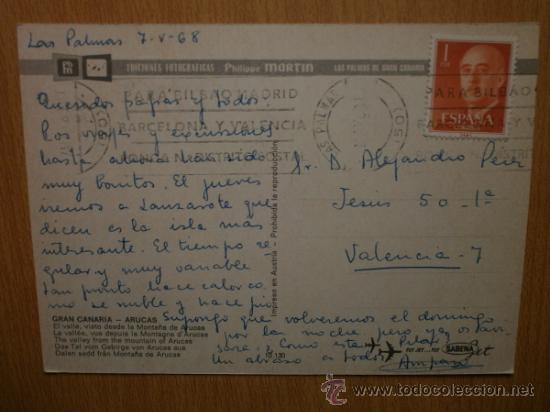 Las Palmas 7-V-68
EDICIONES FOTOGRAFICAS Philippe MARTIN LAS PALMAS DE GRAN CANARIA
1
ESPAÑA
CORREOS
PARA BILBAO MADRID
BARCELONA Y VALENCIA
DISTRITO POSTAL
PARA BILBAO
Queridos papás y todos.
Los viajes y excursiones
hasta ahora han sido
muy bonitos. El jueves
iremos a Lanzarote que
dicen es la isla más
interesante. El tiempo re-
gular y muy variable
tan pronto hace calor co
mo se nubla y hace frío
Supongo que volveremos el domingo
por la noche pero ya os avi-
saré. Como está Pilar
Un abraso a todos
Amparo
Sr. D. Alejandro Perez
Jesus 50-1ª
Valencia-7
Impreso en Austria - Prohibida la reproducción
GRAN CANARIA - ARUCAS
El valle, visto desde la Montaña de Arucas
La vallée, vue depuis la Montagne d'Arucas
The valley from the mountain of Arucas
Das Tal vom Gebirge von Arucas aus
Dalen sedd från Montaña de Arucas
SABENA
todocoleccion
www.todocoleccion.net